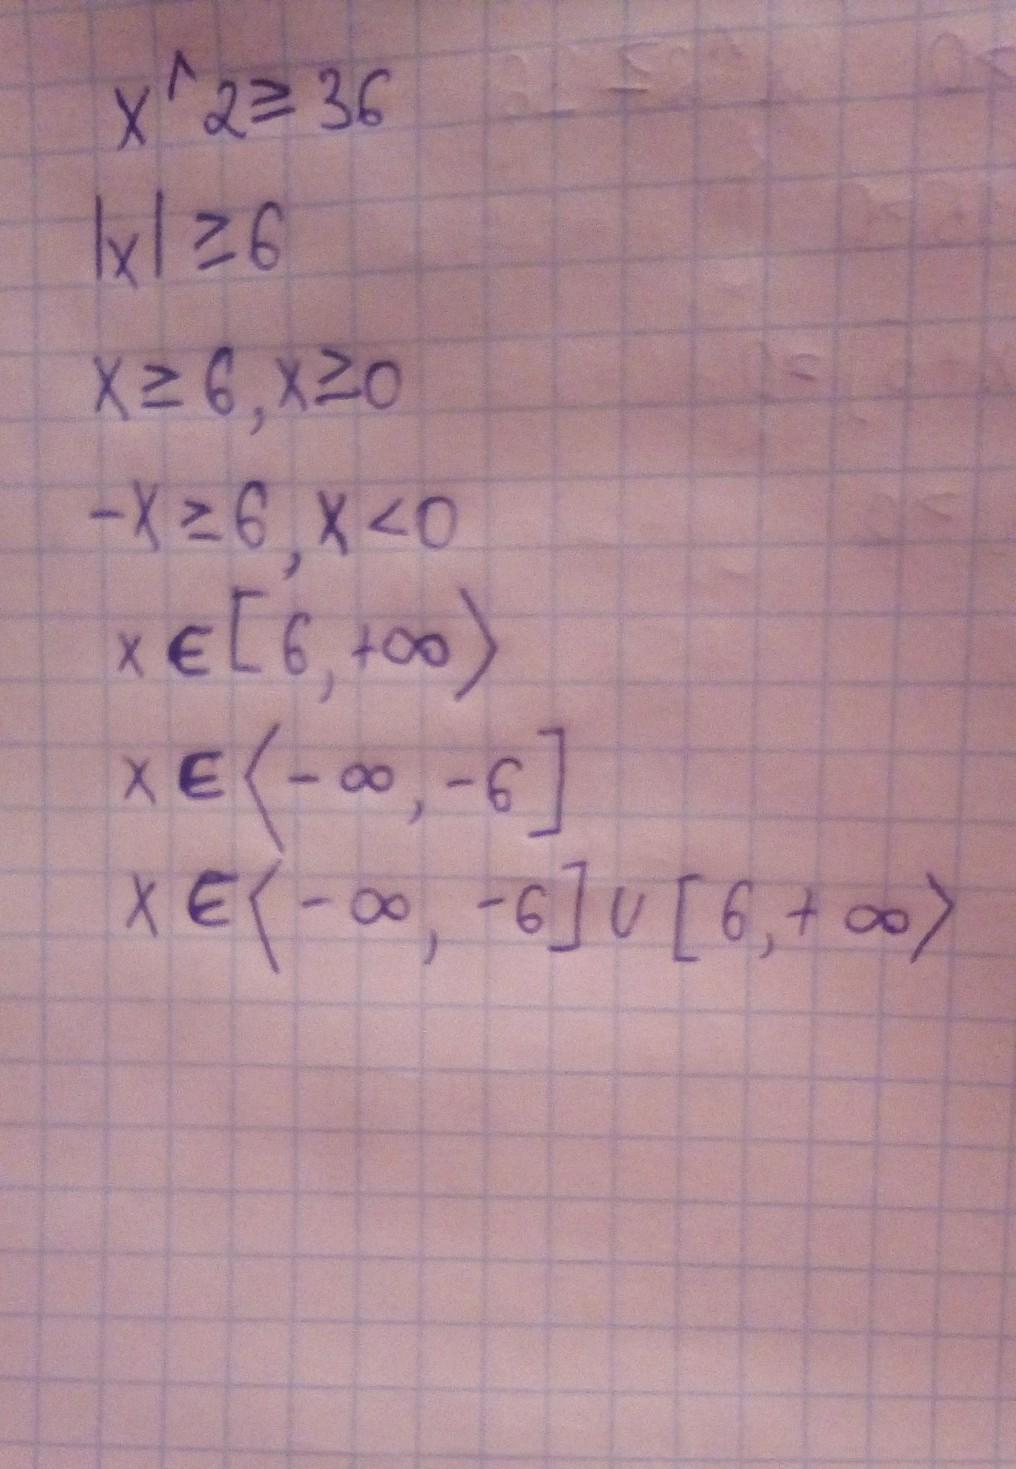 x^2≥36
|x|≥6
x≥6,x≥0
-x≥6,x<0
x∈[6,+∞⟩
x∈⟨-∞,-6]
x∈⟨-∞,-6]∪[6,+∞⟩